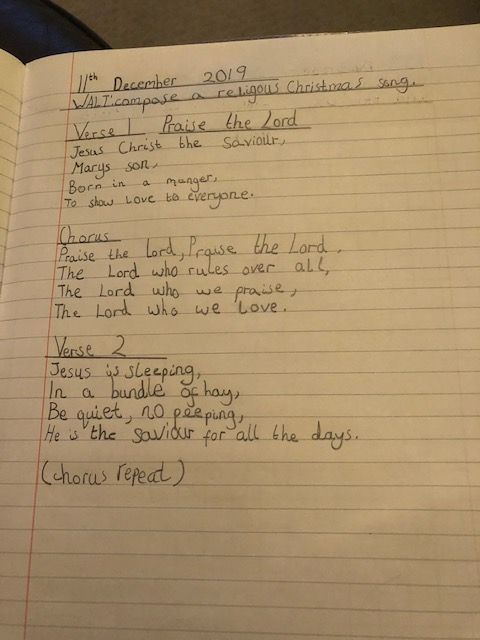 11th December 2019
WALT: compose a religous Christmas song.
Verse 1 Praise the Lord
Jesus Christ the Saviour,
Marys son,
Born in a manger,
To show Love to everyone.
Chorus
Praise the Lord, Praise the Lord,
The Lord who rules over all,
The Lord who we praise,
The Lord who we Love.
Verse 2
Jesus is sleeping,
In a bundle of hay,
Be quiet, no peeping,
He is the saviour for all the days.
(chorus repeat)